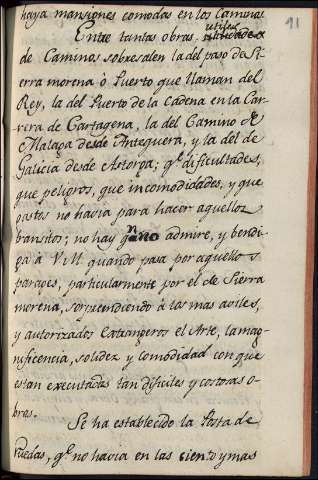 haya mansiones comodas en los Caminos
91
Entre tantas obras utiles
de Caminos sobresalen la del paso de Si-
erra morena ò Puerto que llaman del
Rey, la del Puerto de la Cadena en la Car-
rera de Cartagena, la del Camino de
Malaga desde Antequera, y la del de
Galicia desde Astorga; q.e dificultades,
que peligros, que incomodidades, y que
gastos no havia para hacer aquellos
transitos; no hay q.n no admire, y bendi-
ga à V.M. quando pasa por aquellos
parages, particularmente por el de Sierra
morena, sorprendiendo à los mas aviles,
y autorizados Extrangeros el Arte, la mag-
nificencia, solidez y comodidad con que
estan executadas tan dificiles y costosas o-
bras.
Se ha establecido la Posta de
Ruedas, q.e no havia en las ciento y mas